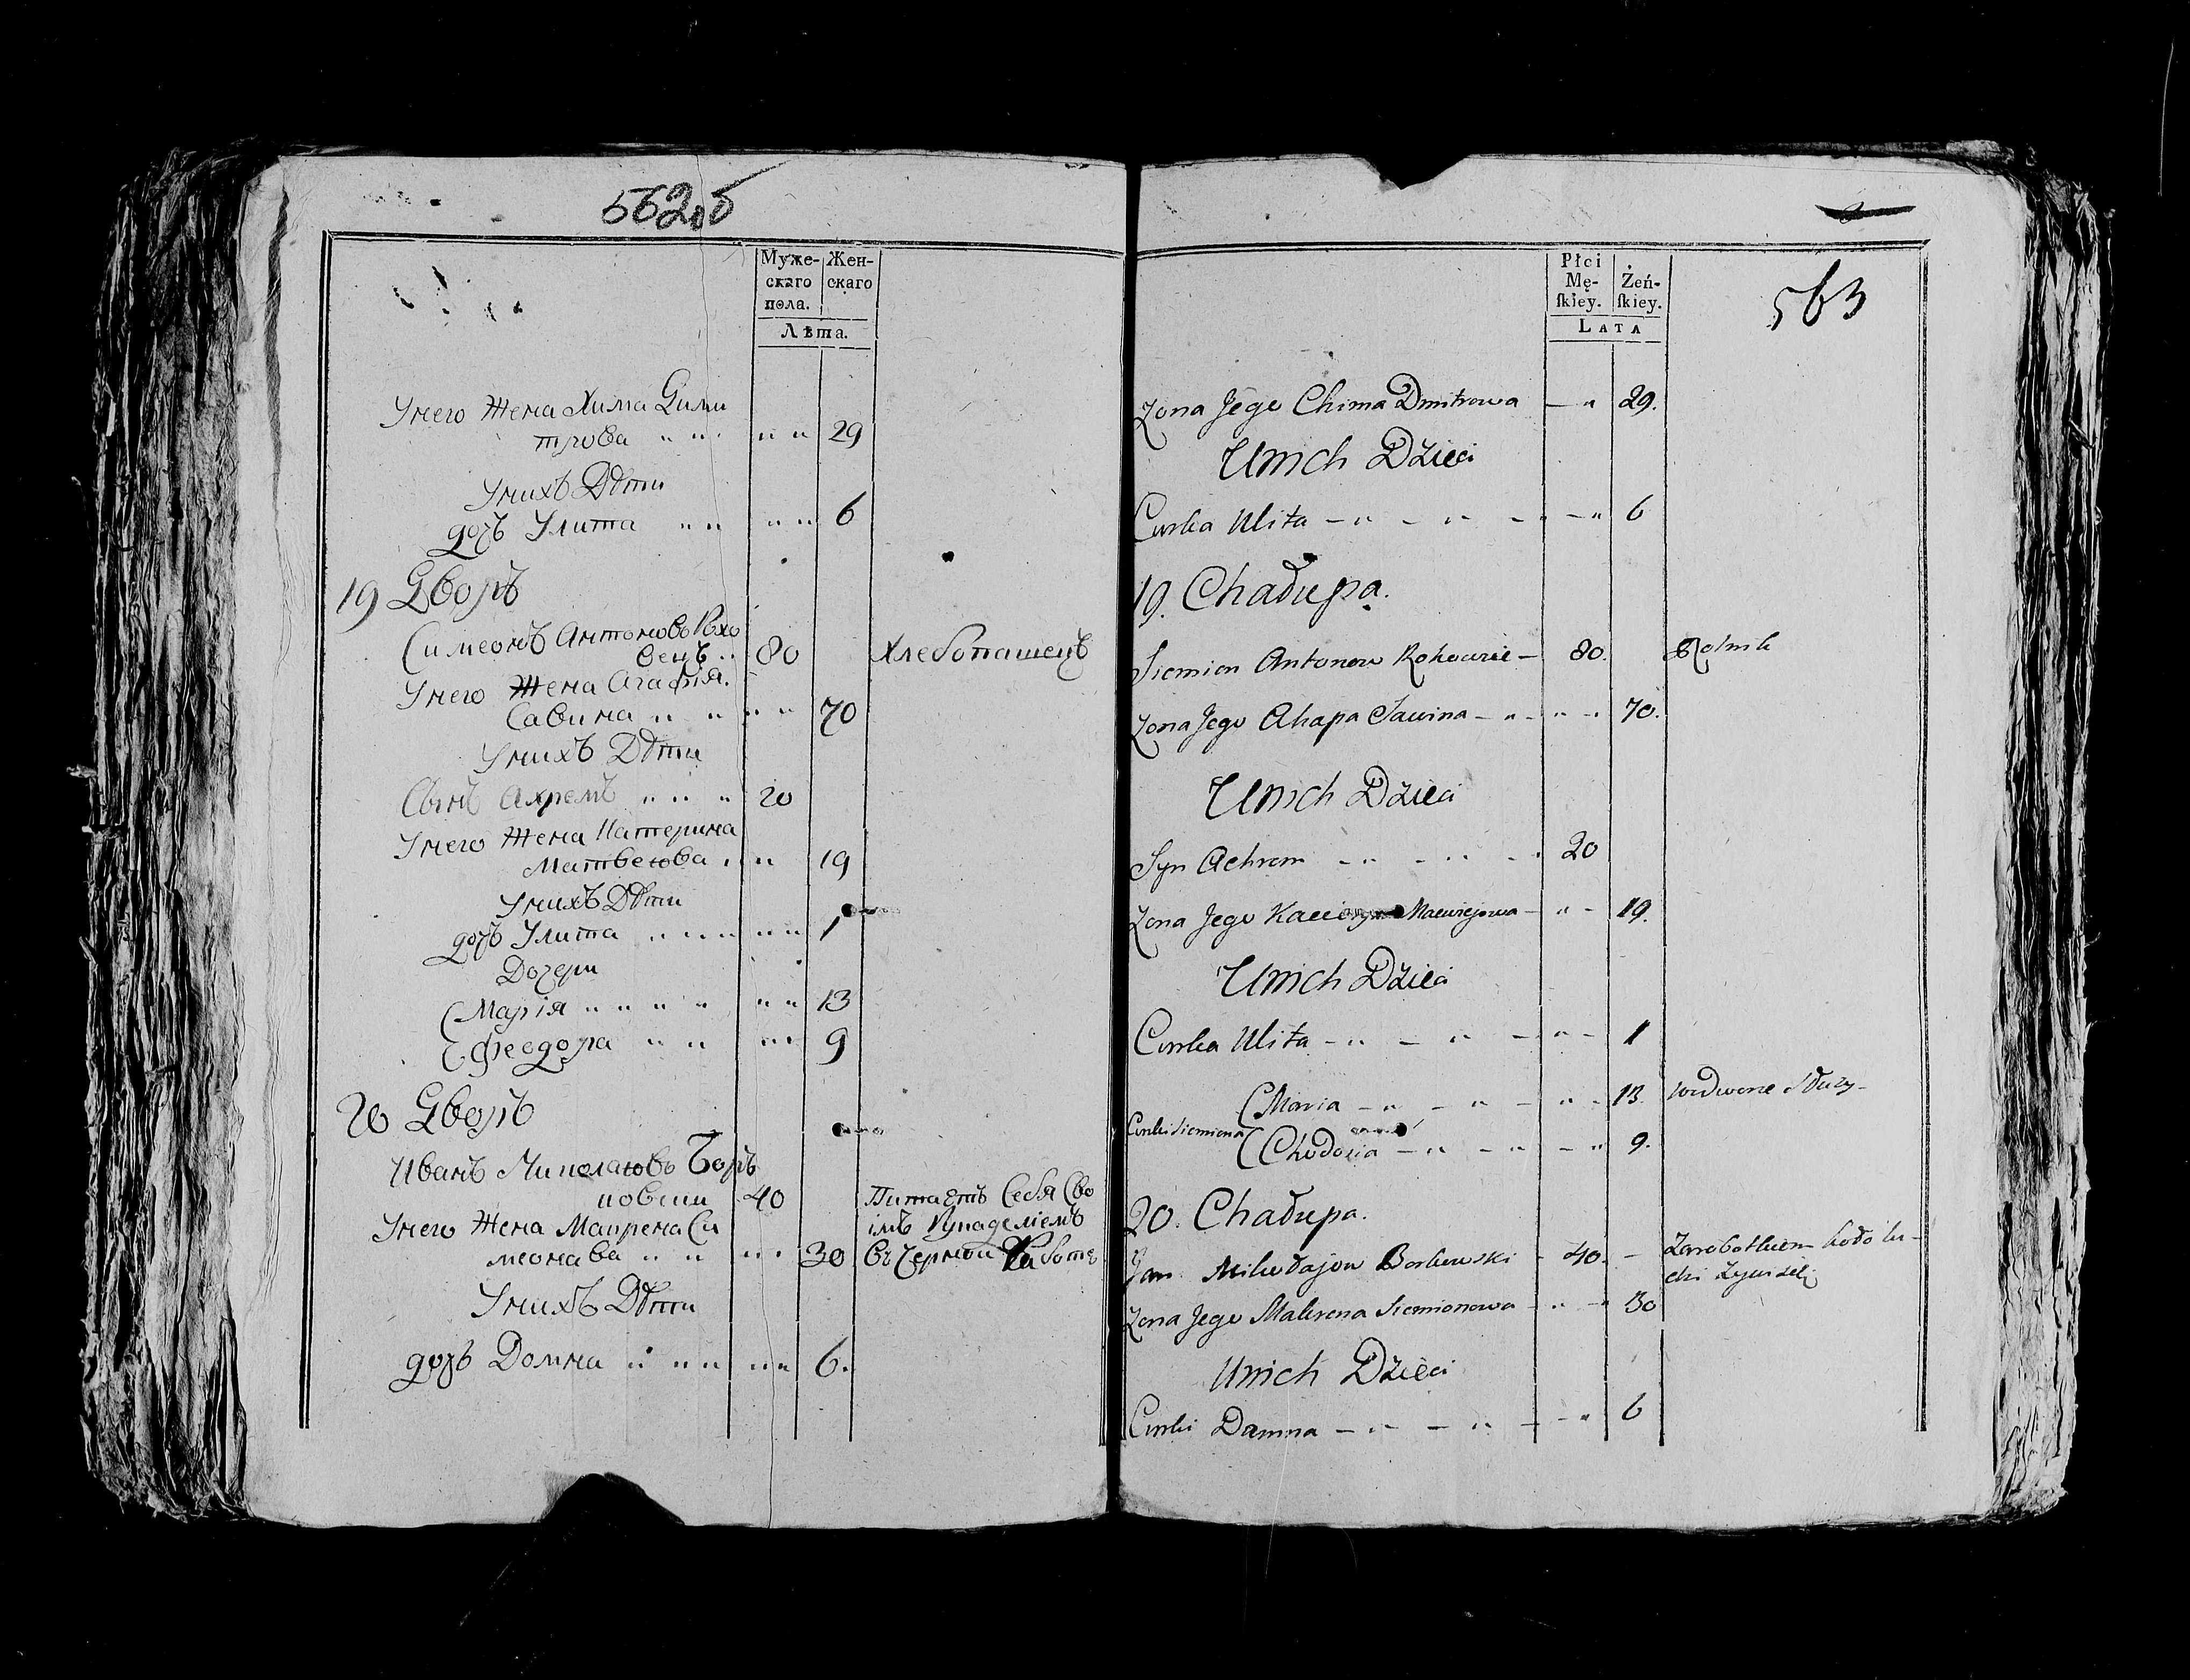 562об
Муже-
скаго
пола.
Жен-
скаго
Лѣта.
Унего Жена Хима Дими
трова 29
Унихъ Дѣти
дочь Улита 6
19 Дворъ
Симеонъ Антоновъ Рохо
вецъ 80 Хлебопашецъ
Унего Жена Агафія
Савина 70
Унихъ Дѣти
Сынъ Ахремъ 20
Унего Жена Катерина
Матвеюва 19
Унихъ Дѣти
дочь Улита 1
Дочери
Марія 13
Феодора 9
20 Дворъ
Иванъ Миколаювъ Боръ
ковски 40 Питаетъ Себя Сво
імъ Рукаделіемъ
Унего Жена Макрена Си
меонава 30 Въ Черной Работе
Унихъ Дѣти
дочь Домна 6.
563
Płci
Mę-
ſkiey.
Żeń-
ſkiey.
LATA
Zona Jego Chima Dmitrowa 29.
Unich Dzieci
Curka Ulita 6
19. Chałupa.
Siemion Antonow Rohowiec 80. Rolnik
Zona Jego Ahapa Sawina 70.
Unich Dzieci
Syn Achrem 20
Zona Jego Kacieryna Maciejowa 19.
Unich Dzieci
Curka Ulita 1
Maria 13. wedworze służy
Curki Siemiona
Chodosia 9.
20. Chałupa.
Jan Mikołajow Borkowski 40. Zarobotkiem koło lu-
dzi
Zona Jego Makrena Siemionowa 30
Unich Dzieci
Curki Damna 6